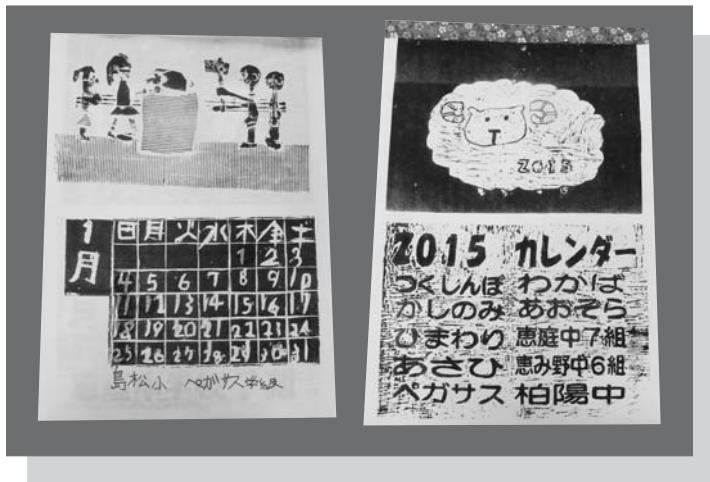 1月
日 月 火 水 木 金 土
1 2 3
4 5 6 7 8 9 10
11 12 13 14 15 16 17
18 19 20 21 22 23 24
25 26 27 28 29 30 31
島松小 ペガサス学級
2015
2015 カレンダー
つくしんぼ わかば
かしのみ あおぞら
ひまわり 恵庭中7組
あさひ 恵み野中6組
ペガサス 柏陽中